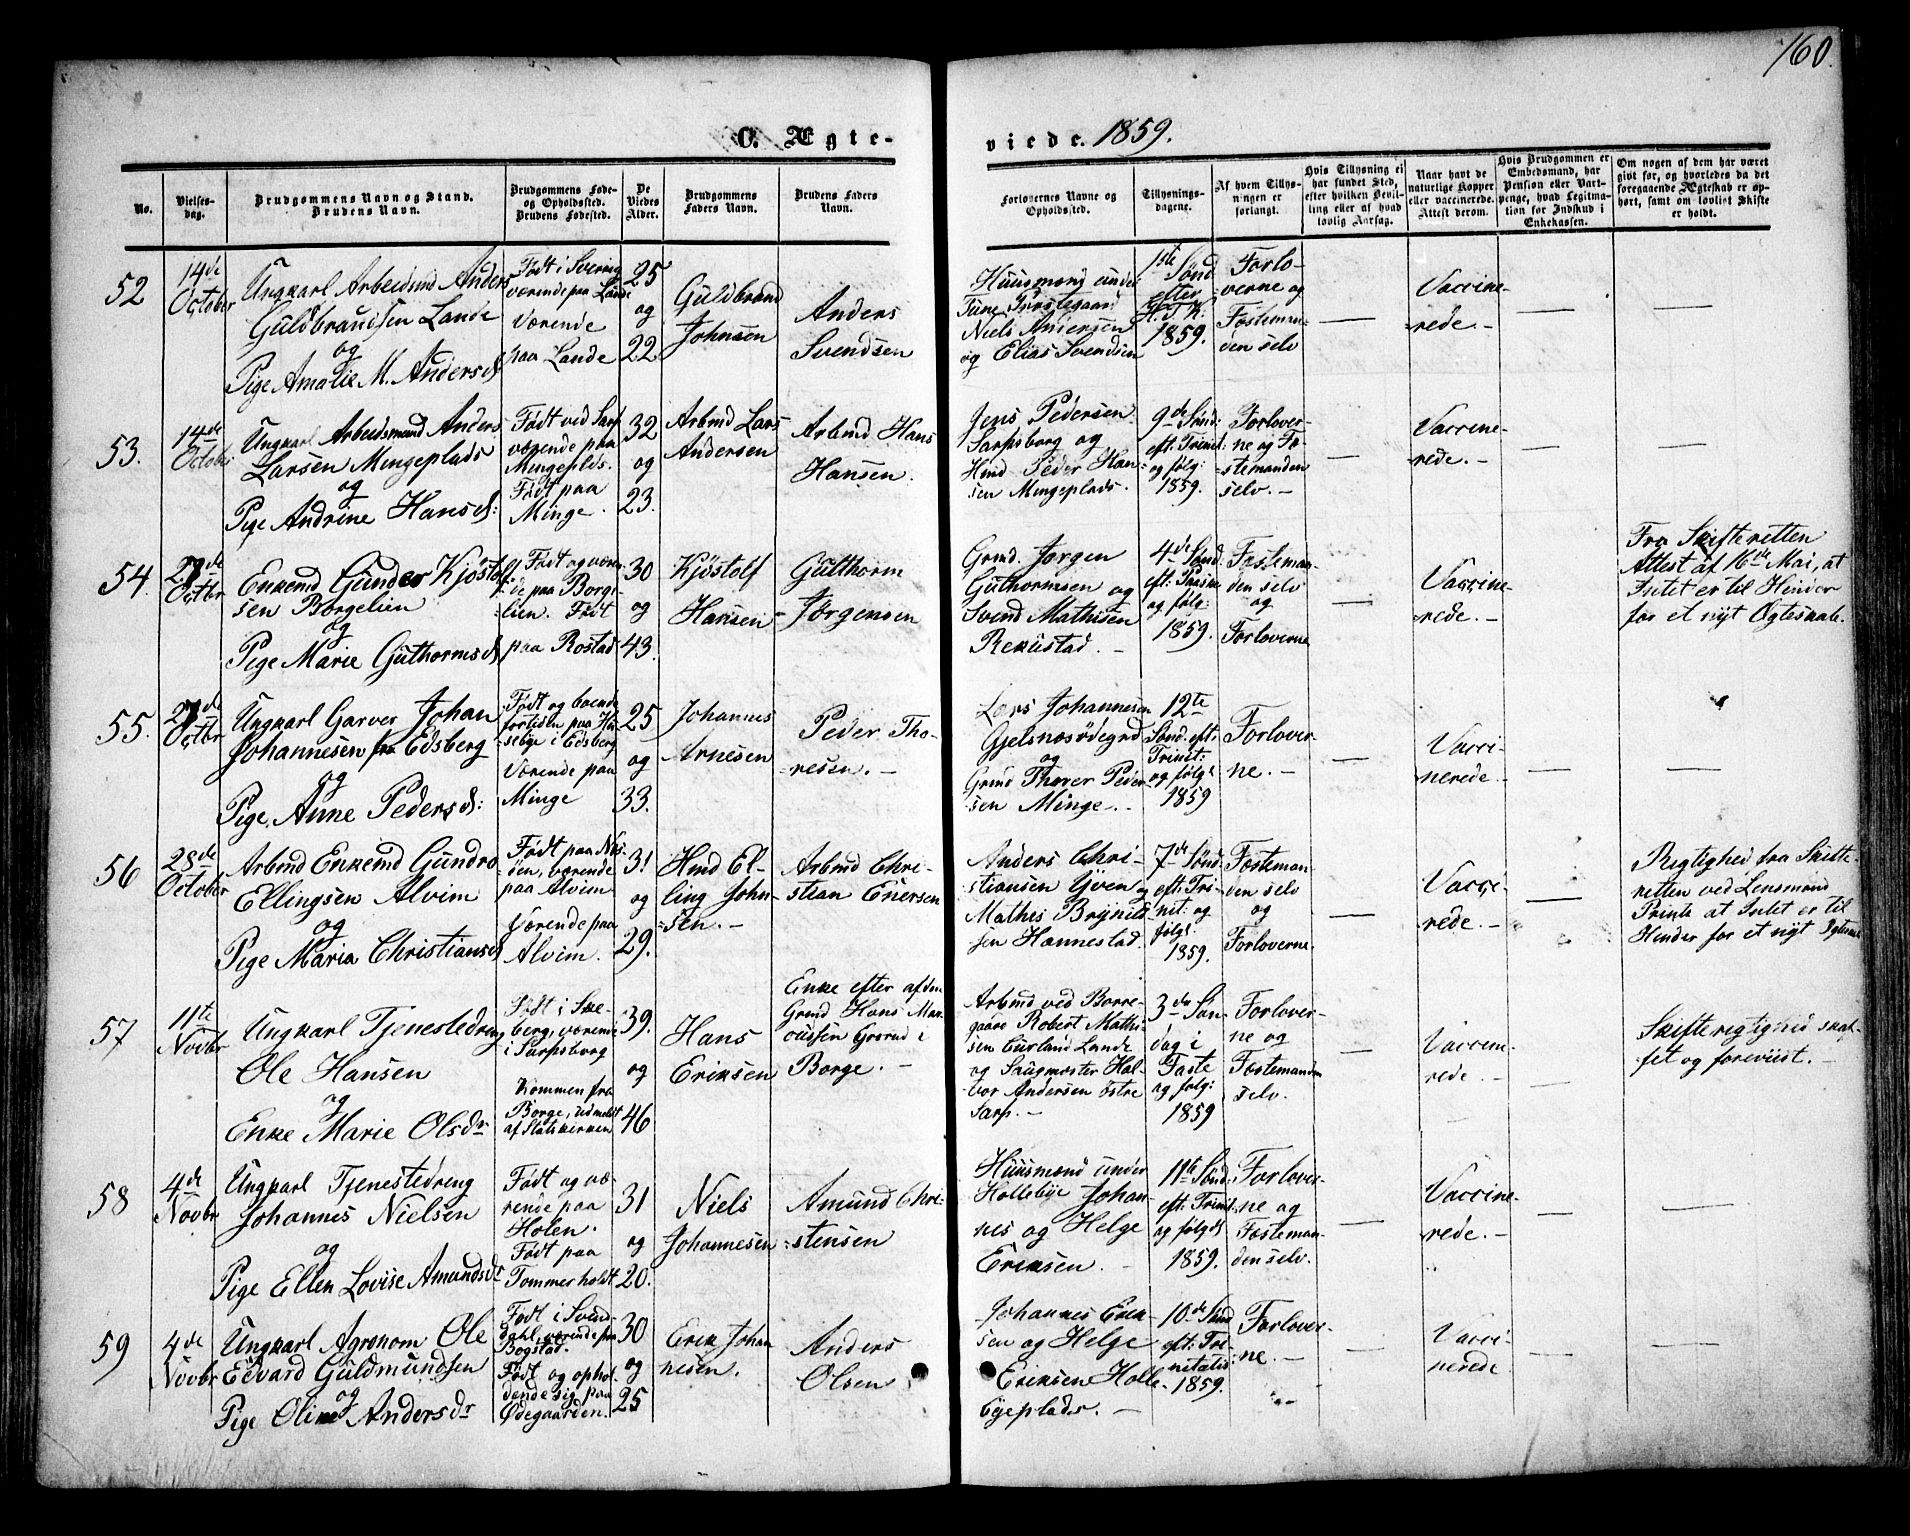 160.
C. Ægte-
viede. 1859.
No.
Vielses-
dag.
Brudgommens Navn og Stand.
Brudens Navn.
Brudgommens Føde-
og Opholdssted.
Brudens Fødested.
De
Viedes
Alder.
Brudgommens
Faders Navn.
Brudens Faders
Navn.
Forlovernes Navne og
Opholdssted.
Tillysnings-
dagene.
Af hvem Tillys-
ningen er
forlangt.
Hvis Tillysning ei
har fundet Sted,
efter hvilken Bevil-
ling eller af hvad
lovlig Aarsag.
Naar havt de
naturlige Kopper
eller vaccinerede.
Attest derom.
Hvis Brudgommen er
Embedsmand, har
Pension eller Vart-
penge, hvad Legitima-
tion for Indskud i
Enkekassen.
Om nogen af dem har været
gift før, og hvorledes da det
foregaaende Ægteskab er op-
hørt, samt om lovligt Skifte
er holdt.
52
14de
October
Ungkarl Arbeidsmd Anders
Guldbrandsen Lande
og
Pige Amalie M. Andersd
Født i Sverrig
værende paa Lande
Værende
paa Lande
25
og
22
Guldbrand
Johnsen
Anders
Svendsen
Huusmænd under
Tune Præstegaard
Niels Andersen
og Elias Svendsen
1ste Sønd
efter
H. T. K.
1859.
Forlo-
verne og
Fosteman-
den selv
Vaccine-
rede. -
53.
14de
October
Ungkarl Arbeidsmand Anders
Larsen Mingeplads
og
Pige Andrine Hansd:
Født ved Sarp
værende paa
Mingeplds.
Født paa
Minge.
32
og
23.
Arbmd Lars
Andersen
Arbmd Hans
Hansen.
Jens Pedersen
Sarpsborg og
Hmd Peder Han-
sen Mingeplads.
9de Sønd:
eft: Trinit
og følg:
1859.
Forlover-
ne og Fo-
stemanden
selv. -
Vaccine-
rede. -
54.
27de
Octbr
Enkemd Gunder Kjöstolf-
sen Borgelien
og
Pige Marie Guthormsd
Født og være-
de paa Borge-
lien. Født
paa Rostad
30
og
43.
Kjöstolf
Hansen
Guthorm
Jørgensen
Grmd. Jørgen
Guthormsen og
Svend Mathisen
Rekustad. -
4de Sønd
eft: Paaske
og følg:
1859.
Fosteman-
den selv
og
Forloverne
Vaccine-
rede. -
Fra Skifteretten
Attest af 16de Mai, at
Intet er til Hinder
for et nyt Ægteskab.
55.
27de
Octbr
Ungkarl Garver Johan
Johannesen fra Edsberg
og
Pige Anne Pedersd:
Født og boende
fortiden paa Hu-
selbye i Edsberg
Værende paa
Minge
25
og
33.
Johannes
Arnesen
Peder Tho-
resen. -
Lars Johannesen
Gjelsnæsødegrd
og
Grmd Thorer Peder-
sen Minge. -
12te
Sønd. eft:
Trinit:
og følg:
1859
Forlover-
ne. -
Vacci-
nerede. -
56
28de
October
Arbmd Enkemd Gundro
Ellingsen Alvim
og
Pige Maria Christiansd
Født paa Næs-
öen, værende
paa Alvim
Værende paa
Alvim.
31
og
29.
Hmd El-
ling John-
sen. -
Arbmd Chri-
stian Enersen
Anders Chri-
stiansen Yven og
Mathis Brynild-
sen Hannestad.
7de Sønd
eft: Tri-
nit: og
følg:
1859.
Fosteman-
den selv
og
Forloverne.
Vacci-
rede. -
Rigtighed fra Skifte-
retten ved Lensmand
Printz at Intet er til
Hinder for et nyt Ægtesk
57
11te
Novbr
Ungkarl Tjenestedreng
Ole Hansen
og
Enke Marie Olsdr
Født i Ske-
berg, værende
i Sarpsborg
Kommen fra
Borge, udmeldt
af Statskirken
39.
og
46
Hans
Eriksen
Enke efter afdøde
Grmd Hans Mar-
cussen Grorud i
Borge. -
Arbmd ved Borre-
gaard Robert Mathi-
sen Curland Lande
og Sagmester Hal-
vor Andersen östre
Sarp. -
3de Søn-
dag i
Faste
og følg:
1859
Forlover-
ne og
Fostemanden
selv.
Vaccine-
rede. -
Skifterigtighed skaf-
fet og foreviist. -
58
4de
Novbr
Ungkarl Tjenestedreng
Johannes Nielsen
og
Pige Ellen Lovise Amundsdr
Født og væ-
rende paa
Holen.
Født paa
Tommerholdt
31
og
20.
Niels
Johannesen
Amund Chri-
stensen
Huusmænd under
Hollebye Johan-
nes og Helge
Eriksen. -
11te Sønd
eft: Trinit:
og følgd
1859.
Forlover-
ne og
Fosteman-
den selv.
Vaccine-
rede. -
59
4de
Novbr
Ungkarl Agronom Ole
Edvard Guldmundsen
og
Pige Oline Andersdr
Født i Svend-
dahl, værende paa
Bogstad.
Født og ophol-
dende sig paa
Ødegaarden.
30
og
25
Erik Johan
nesen.
Anders
Olsen
Johannes Erik-
sen og Helge
Eriksen Holle-
byeplads. -
10de Sønd
eft: Tri-
nitatis:
1859.
Forlover-
ne. -
Vacci-
nerede